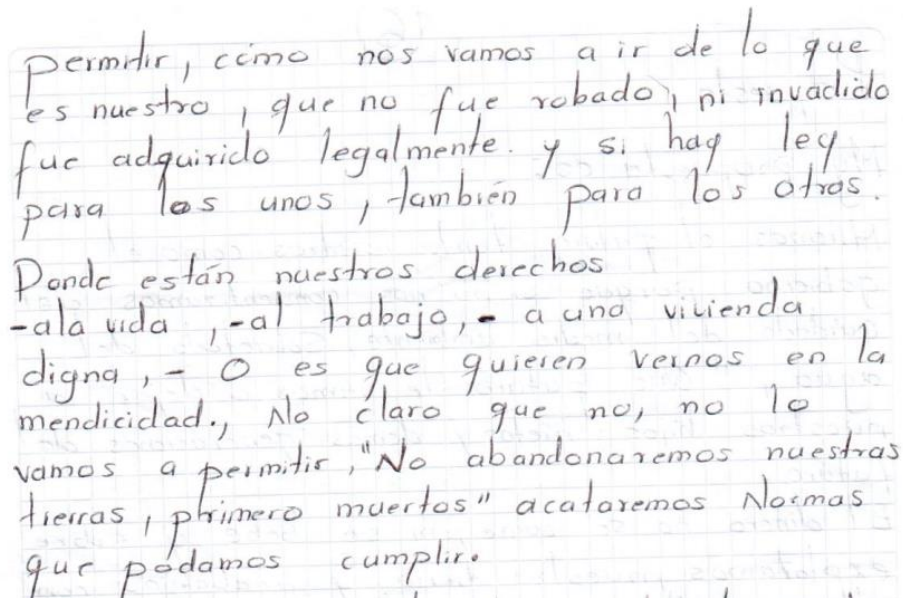 permitir, cómo nos vamos a ir de lo que
es nuestro, que no fue robado, ni invadido
fue adquirido legalmente. y si hay ley
para los unos, también para los otros.
Donde están nuestros derechos
-ala vida, -al trabajo, - a una vivienda
digna, - O es que quieren vernos en la
mendicidad., No claro que no, no lo
vamos a permitir, "No abandonaremos nuestras
tierras, primero muertos" acataremos Normas
que pódamos cumplir.